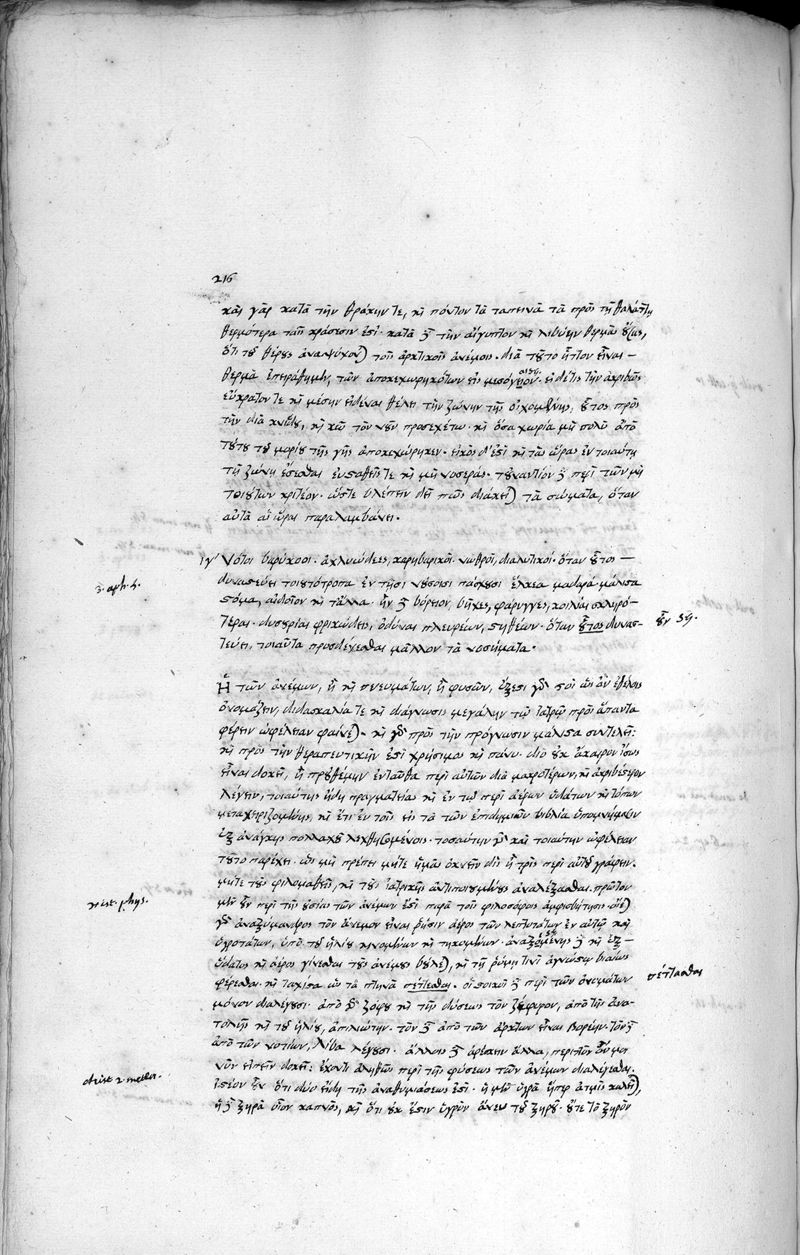 216
καὶ γὰρ κατὰ τὴν θράκην τε, καὶ πόντον τὰ ταπεινὰ τὰ πρὸς τῇ θαλάττῃ
θερμότερα ταῖς κράσεσιν ἐστί. κατὰ δὲ τὴν αἴγυπτον καὶ λιβύην θερμὰς οὔσας,
ὅτι τοῦ θέρους ἀναψύχονται τοῖς ἀρκτικοῖς ἀνέμοις. διὰ τοῦτο ἧττον εἶναι
θερμὰ τῶν ἀποκεχωρηκότων εἰς μεσόγειον. εἰ δέ τις τὴν ἀκριβῶς
εὔκρατόν τε καὶ μέσην εἰδέναι θέλει τὴν ζώνην τῆς οἰκουμένης, οὗτος πρὸς
τὴν διὰ κνίδου, καὶ κῶ τὸν νοῦν προσεχέτω. καὶ ὅσα χωρία μὴ πολὺ ἀπὸ
τούτου τοῦ μορίου τῆς γῆς ἀποκεχώρηκεν. εἰκὸς δ' ἐστὶ καὶ τὰς ὥρας ἐν τοιαύτῃ
τῇ ζώνῃ ἔσεσθαι εὐσταθεῖς τε καὶ μὴ νοσεράς. τοὐναντίον δὲ περὶ τῶν μὴ
τοιούτων κριτέον. ὥστε βλέπειν δεῖ πῶς διάκειται τὰ σώματα, ὅταν
αὐτὰ αἱ ὧραι παραλαμβάνει.
ιγ' Νότοι βαρύκοοι. ἀχλυώδεες, καρηβαρικοὶ νωθροὶ, διαλυτικοί. ὅταν οὗτος
3. aph. 5.
δυναστεύει τοιουτότροπα ἐν τῇσι νούσοισι πάσχουσι ἕλκεα μαδαρὰ μάλιστα
στόμα, αἰδοῖον καὶ τἄλλα. ἢν δὲ βόρειον, βῆχες, φάρυγγες, κοιλίαι σκληρό-
τεραι. δυσουρίαι φρικώδεις, ὀδύναι πλευρέων, στηθέων. ὅταν οὗτος δυνασ-
τεύῃ, τοιαῦτα προσδέχεσθαι μᾶλλον τὰ νοσήματα.
Ἡ τῶν ἀνέμων, ἢ καὶ πνευμάτων, ἢ φυσῶν, ἔξεστι γάρ σοι ὡς ἂν ἐθέλοις
ὀνομάζειν, διδασκαλία τε καὶ διάγνωσις μεγάλην τῷ ἰατρῷ πρὸς ἅπαντα
φέρειν ὠφέλειαν φαίνεται. καὶ γὰρ πρὸς τὴν πρόγνωσιν μάλιστα συντελεῖ:
καὶ πρὸς τὴν θεραπευτικὴν ἐστὶ χρήσιμος καὶ πάνυ. διὸ οὐκ ἄκαιρον ἴσως
εἶναι δοκεῖ, ἢ προὐθέμην ἐνταῦθα περὶ αὐτῶν διὰ μακροτέρων, καὶ ἀκριβέστερον
λέγειν, τοιαύτης ἤδη πραγματείας καὶ ἐν τῷ περὶ ἀέρων ὑδάτων καὶ τόπων
μεταχειριζομένης, καὶ ἔτι ἐν τοῖς εἰς τὰ τῶν ἐπιδημιῶν βιβλία ὑπομνήμασιν
ἐξ ἀνάγκης πολλαχοῦ λεχθησομένοις. τοσαύτην γὰρ καὶ τοιαύτην ὠφέλειαν
τοῦτο παρέχει. ὡς μὴ πρέπει μήτε ἡμᾶς ὀκνεῖν δὶς ἢ τρὶς περὶ αὐτοῦ γράφειν.
μήτε τοὺς φιλομαθεῖς, καὶ τοὺς ἰατρικῆς ἀντιποιουμένους ἀναλέξασθαι. πρῶτον
μὲν οὖν περὶ τῆς οὐσίας τῶν ἀνέμων ἐστὶ παρὰ τοῖς φιλοσόφοις ἀμφισβήτησις
γὰρ ἀναξίμανδρος τὸν ἄνεμον εἶναι ῥῆσιν ἀέρος τῶν λεπτοτάτων ἐν αὐτῷ καὶ
ὑγροτάτων, ὑπὸ τοῦ ἡλίου κινουμένων καὶ τηκομένων. ἀναξιμένης δὲ καὶ ἐξ
ὕδατος καὶ ἀέρος γίνεσθαι τοὺς ἀνέμους βούλεται, καὶ τῇ ῥύμῃ τινὶ ἀγνώστῳ βιαίως
φέρεσθαι. καὶ τάχιστα ὡς τὰ πτηνὰ πέτεσθαι. οἱ στωϊκοὶ δὲ περὶ τῶν ὀνομάτων
πέτασθαι
μόνον διαλέγουσι. ἀπὸ γὰρ ζόφου καὶ τῆς δύσεως τὸν ζέφυρον, ἀπὸ τῆς ἀνα-
τολῆς καὶ τοῦ ἡλίου, ἀπηλιώτην. τὸν δὲ ἀπὸ τῶν ἄρκτων εἶναι βορέην. τὸν δὲ
ἀπὸ τῶν νοτίων, λίβα λέγουσι. ἄλλοις δὲ ἀρέσκει ἄλλα, περιττὸν οὖν μοι
νῦν εἰπεῖν δοκεῖ: ἔχοντι ἀληθῶς περὶ τῆς φύσεως τῶν ἀνέμων διαλέγεσθαι.
arist. 2 meteor.
ἰστέον οὖν ὅτι δύο εἴδη τῆς ἀναθυμιάσεως ἐστί. ἡ μὲν ὑγρὰ ἥπερ ἀτμὶς καλεῖται,
ἡ δὲ ξηρὰ οἷον καπνὸς, καὶ ὅτι οὐκ ἔστιν ὑγρὸν ἄνευ τοῦ ξηροῦ. οὔτε τὸ ξηρὸν